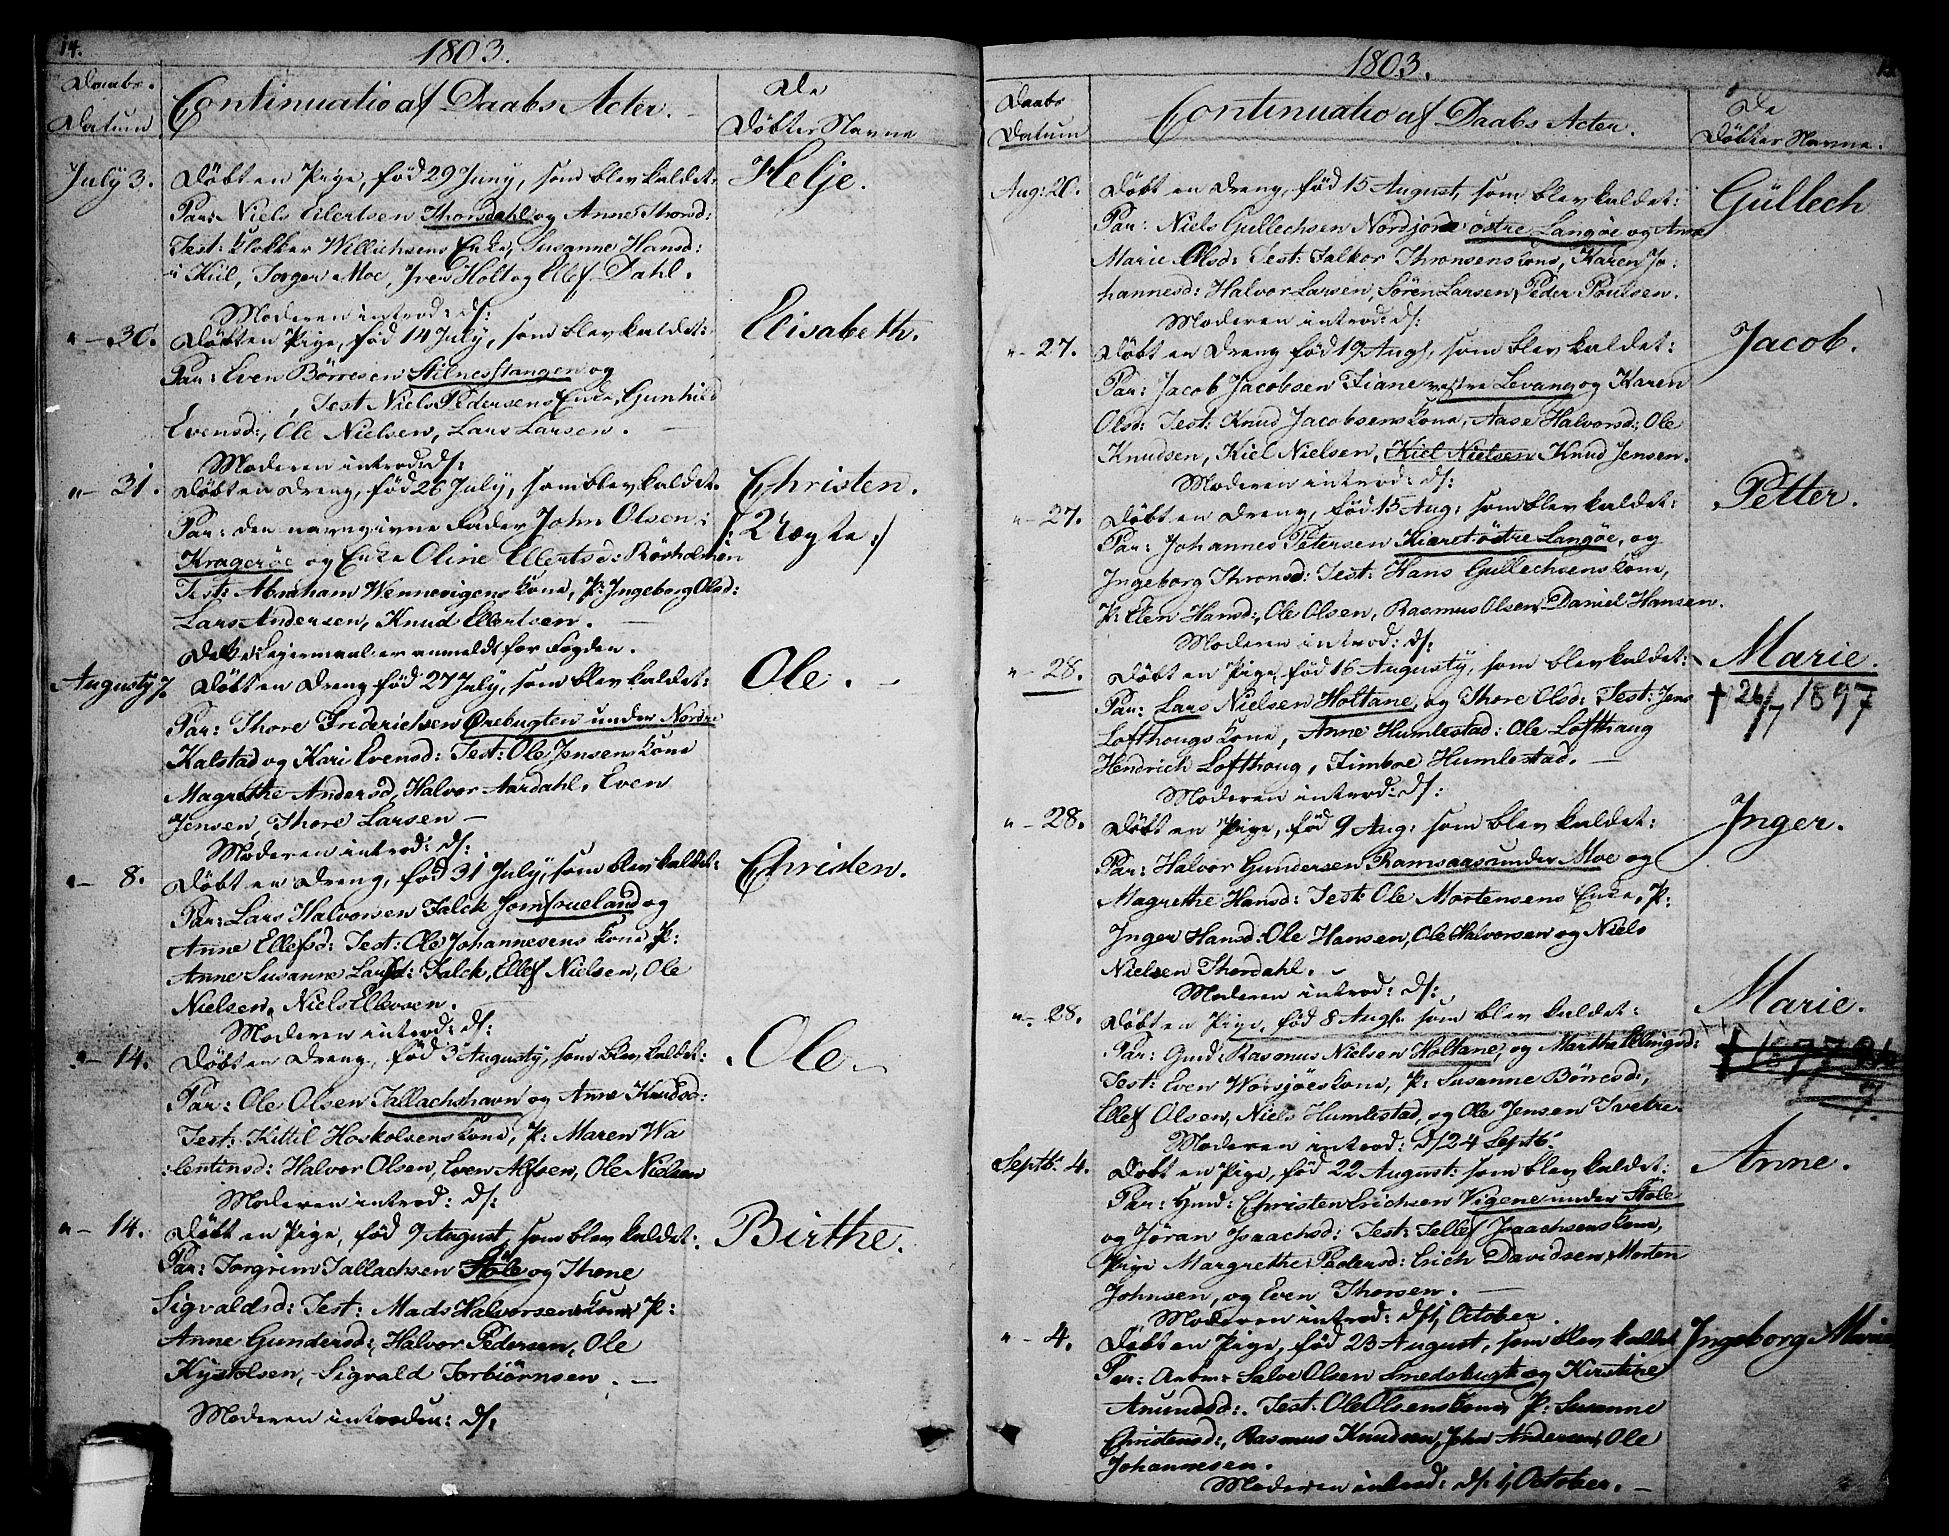 14.
1803.
Daabs.
Datum
Continuatio af Daabs Acter.
De
Döbtes Navne
July 3.
Döbt en Pige, föd 29 Juny, som blev kaldet:
Helje.
Par: Niels Eilertsen Thorsdahl og Anne Thorsd:
Test: Klokker Willichsens Enke, Susanne Hansd:
i Kiil, Torger Moe, Ives Holt og Ellef Dahl.
Moderen introd: ds:
" – 30.
Döbt en Pige, föd 14 July, som blev kaldet:
Elisabeth.
Par: Even Börresen Stilnestangen og
, Test Niels Pedersens Enke, Gunhild
Evensd:, Ole Nielsen, Lars Larsen.
Moderen introd: ds:
" – 31.
Döbt en Dreng, föd 26 July, som blev kaldet.
Christen.
Par: den navngivne Fader John Olsen i
/: Uægte :/
Kragerøe og Enke Oline Ellertsd: Rörholmen
Test: Abraham Wennevigens Kone, P: Ingeborg Olsd:
Lars Andersen, Knud Ellertsen. –
Dette Leiermaal er anmeldt for Fogden.
Augusty 7
Döbt en Dreng föd 27 July, som blev kaldet:
Ole. –
Par: Thore Friderichsen Ørebugten under Nordre
Kalstad og Kari Evensd: Test: Ole Jensens Kone
Magrethe Andersd, Halvor Aardahl, Even
Jensen, Thore Larsen –
Moderen introd: ds:
" – 8.
Döbt en Dreng, föd 31 July, som blev kaldet:
Christen.
Par: Lars Halvorsen Falck Jomfrueland og
Anne Ellefsd: Test: Ole Johannesens Kone P:
Anne Susanne Larsd: Falck, Ellef Nielsen, Ole
Nielsen, Niels Ellevsen.
Moderen introd: ds:
" – 14.
Döbt en Dreng, föd 3 Augusty, som blev kaldet:
Ole –
Par: Ole Olsen Tallachshavn og Anne Knudsd:
Test: Kittil Hoskolsens Kone, P: Maren Wa
:lentinsd: Halvor Olsen, Even Alfsen, Ole Nielsen
Moderen introd: ds:
" – 14.
Döbt en Pige, föd 9 August, som blev kaldet:
Birthe.
Par: Torgrim Tallachsen Støle og Thone
Sigvaldsd: Test: Mads Halvorsens Kone P:
Anne Gundersd:, Halvor Pedersen, Ole
Kystolsen, Sigvald Torbiörnsen. –
Moderen introdu: ds:
1803.
Daabs
Datum
Continuatio af Daabs Acter.
De
Döbtes Navne.
Aug: 20.
Döbt en Dreng, föd 15 August, som blev kaldet:
Gullech
Par: Niels Gullechsen Nordjorde östre Langöe og Anne
Marie Olsd: Test: Falkor Thronsens Kone, Karen Jo-
hannesd: Halvor Larsen, Sören Larsen, Peder Poulsen.
Moderen introd: ds:
" – 27.
Döbt en Dreng föd 19 Augs, som blev kaldet:
Jacob.
Par: Jacob Jacobsen Fiane vestre Levang og Karen
Olsd: Test: Knud Jacobsens Kone, Aase Halvorsd: Ole
Knudsen, Kiel Nielsen, Kiel Nielsen Knud Jensen.
Moderen introd: ds:
" – 27.
Döbt en Dreng, föd 15 Aug: som blev kaldet:
Petter.
Par: Johannes Petersen Kiaret östre Langöe, og
Ingeborg Thronsd: Test: Hans Gullechsens Kone,
P: Elen Hansd:, Ole Olsen, Rasmus Olsen, Daniel Hansen.
Moderen introd: ds:
" – 28.
Döbt en Pige, föd 16 Augusty, som blev kaldet:
Marie.
Par: Lars Nielsen Holtane, og Thore Olsd: Test: Jens
† 26/7 1897
Lofthougs Kone, Anne Humlestad: Ole Lofthaug
Hendrich Lofthoug, Timboe Humlestad. –
Moderen introd: ds:
" – 28.
Döbt en Pige, föd 9 Aug: som blev kaldet:
Inger.
Par: Halvor Gundersen Ramsaas under Moe og
Magrethe Hansd: Test: Ole Mortensens Enke, P:
Inger Hansd: Ole Hansen, Ole Halvorsen og Niels
Nielsen Thordahl. –
Moderen introd: ds:
" – 28.
Döbt en Pige, föd 8 Augs. som blev kaldet:
Marie.
Par: Gmd: Rasmus Nielsen Holtane, og Marthe Ellingsd:
Test: Even Worsjöes Kone, P: Susanne Börresd:,
Ellef Olsen, Niels Humlestad, og Ole Jensen Tvetre.
Moderen introd: ds 24 Septb.
Septb. 4.
Döbt en Pige, föd 22 August: som blev kaldet:
Anne.
Par: Hmd: Christen Erichsen Vigene under Støle
og Jöran Isaachsd: Test: Tellef Isaachsens Kone,
Pige Margrethe Pedersd: Erich Davidsen, Morten
Johnsen, og Even Thorsen. –
Moderen introd: ds 1 October.
" – 4.
Döbt en Pige, föd 23 August, som blev kaldet
Ingeborg Marie
Par: Arbm: Salve Olsen Smedsbugt og Kirstine
Anundsd:. Test: Ole Olsens Kone, P: Susanne
Christensd:, Rasmus Knudsen, John Andersen, Ole
Johannesen.
Moderen introd: ds: 1, October. –